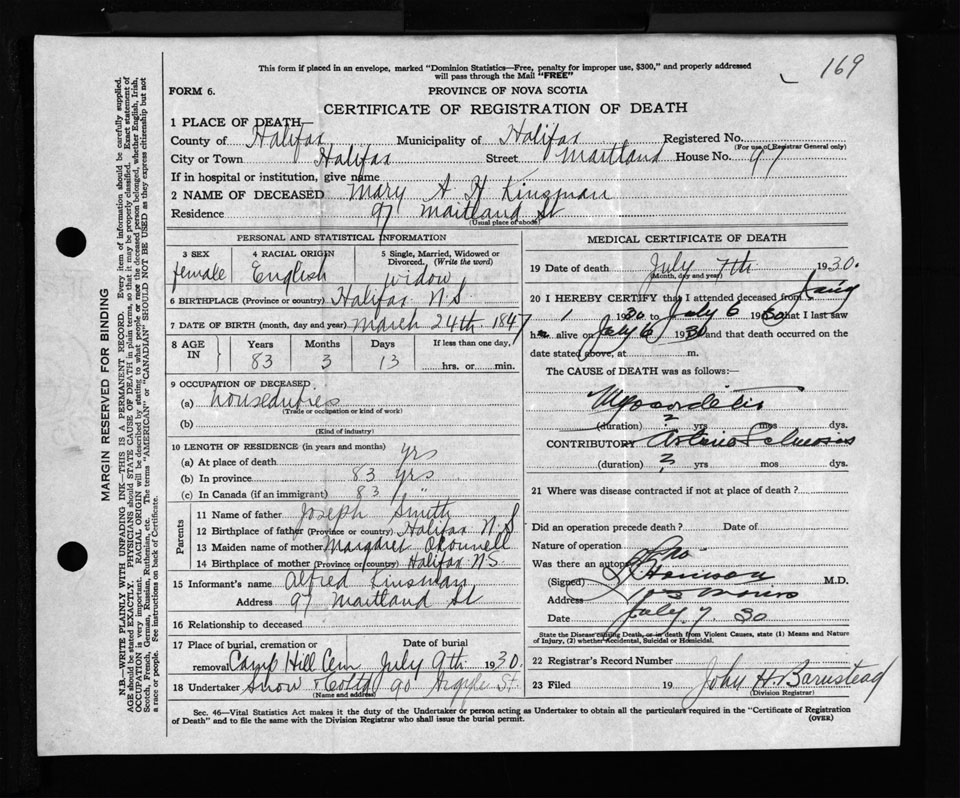 169
This form if placed in an envelope, marked "Dominion Statistics—Free, penalty for improper use, $300," and properly addressed
will pass through the Mail "FREE"
FORM 6.
PROVINCE OF NOVA SCOTIA
CERTIFICATE OF REGISTRATION OF DEATH
1 PLACE OF DEATH—
County of Halifax Municipality of Halifax Registered No.
(For use of Registrar General only)
City or Town Halifax Street Maitland House No. 97
If in hospital or institution, give name
2 NAME OF DECEASED Mary A H Kinsman
Residence 97 Maitland St
(Usual place of abode)
PERSONAL AND STATISTICAL INFORMATION
3 SEX 4 RACIAL ORIGIN 5 Single, Married, Widowed or
Divorced. (Write the word)
female English widow
6 BIRTHPLACE (Province or country) Halifax N.S.
7 DATE OF BIRTH (month, day and year) March 24th. 1847
8 AGE IN Years Months Days If less than one day,
83 3 13 hrs. or min.
9 OCCUPATION OF DECEASED
(a) houseduties
(Trade or occupation or kind of work)
(b)
(Kind of industry)
10 LENGTH OF RESIDENCE (in years and months)
(a) At place of death yrs
(b) In province 83 yrs
(c) In Canada (if an immigrant) 83 "
Parents
11 Name of father Joseph Smith
12 Birthplace of father (Province or country) Halifax N.S
13 Maiden name of mother Margaret O'Connell
14 Birthplace of mother (Province or country) Halifax N.S.
15 Informant's name Alfred Kinsman
Address 97 Maitland St
16 Relationship to deceased
17 Place of burial, cremation or Date of burial
removal Camp Hill Cem July 9th. 1930.
18 Undertaker Snow & Co Ltd 90 Argyle St.
(Name and address)
MEDICAL CERTIFICATE OF DEATH
19 Date of death July 7th 1930.
(Month, day and year)
20 I HEREBY CERTIFY that I attended deceased from
1 1930 to July 6 1930 that I last saw
h alive on July 6 1930 and that death occurred on the
date stated above, at m.
The CAUSE of DEATH was as follows:
Myocarditis
(duration) ? yrs mos dys.
CONTRIBUTORY Arterio Sclerosis
(duration) ? yrs mos dys.
21 Where was disease contracted if not at place of death?
Did an operation precede death? Date of
Nature of operation
Was there an autopsy
(Signed) M.D.
Address
Date July 7. 30
State the Disease causing Death, or in death from Violent Causes, state (1) Means and Nature
of Injury, (2) whether Accidental, Suicidal or Homicidal.
22 Registrar's Record Number
23 Filed 19 John H. Barnstead
(Division Registrar)
Sec. 46—Vital Statistics Act makes it the duty of the Undertaker or person acting as Undertaker to obtain all the particulars required in the "Certificate of Registration
of Death" and to file the same with the Division Registrar who shall issue the burial permit.
(OVER)
MARGIN RESERVED FOR BINDING
N.B.—WRITE PLAINLY WITH UNFADING INK—THIS IS A PERMANENT RECORD. Every item of information should be carefully supplied.
AGE should be stated EXACTLY. PHYSICIANS should STATE CAUSE OF DEATH in plain terms, so that it may be properly classified. Exact statement of
OCCUPATION is very important. RACIAL ORIGIN will be described by stating to what people or race the deceased person belonged, whether English, Irish,
Scotch, French, German, Russian, Ruthenian, etc. The terms "AMERICAN" or "CANADIAN" SHOULD NOT BE USED as they express citizenship but not
a race or people. See instructions on back of Certificate.